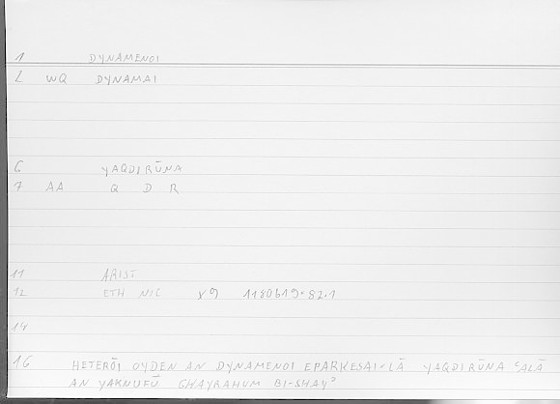 1 DYNAMENOI
2 WQ DYNAMAI
6 YAQDIRŪNA
7 AA Q D R
11 ARIST
12 ETH NIC
14
16 HETERŌI OYDEN AN DYNAMENOI EPARKESAI-LĀ YAQDIRŪNA ʿALĀ
AN YAKNUFŪ GHAYRAHUM BI-SHAYʾ